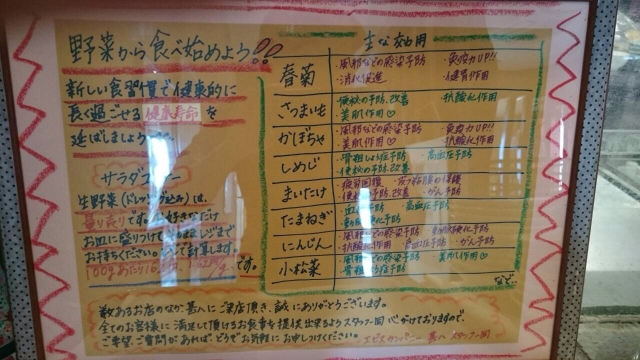 野菜から食べ始めよう!!
新しい食習慣で健康的に
長く過ごせる健康寿命を
延ばしましょう
サラダ
生野菜(ドレッシング込み)は、
量り売りです。お好きなだけ
お皿に盛りつけて レジまで
お持ちください。 計算します。
100gあたり です。
主な効用
春菊
・風邪などの感染予防 ・免疫力UP!!
・消化促進 ・健胃作用
さつまいも
・便秘の予防、改善 ・抗酸化作用
・美肌作用♡
かぼちゃ
・風邪などの感染予防 ・免疫力UP!!
・美肌作用♡ ・抗酸化作用
しめじ
・骨粗しょう症予防 ・高血圧予防
・便秘の予防、改善
まいたけ
・疲労回復 ・皮フ粘膜の保護
・便秘の予防、改善 ・がん予防
たまねぎ
・高血圧予防
・動脈硬化予防
にんじん
・風邪などの感染予防 ・動脈硬化予防
・抗酸化作用 ・高血圧予防 ・がん予防
小松菜
・風邪などの感染予防 ・美肌作用♡
など…
数あるお店のなか 甚八にご来店頂き、誠にありがとうございます。
全てのお客様に満足して頂けるお食事を提供出来るようスタッフ一同心がけておりますので
ご希望、ご質問があれば、どうぞお気軽にお申しつけください。
甚八 スタッフ一同